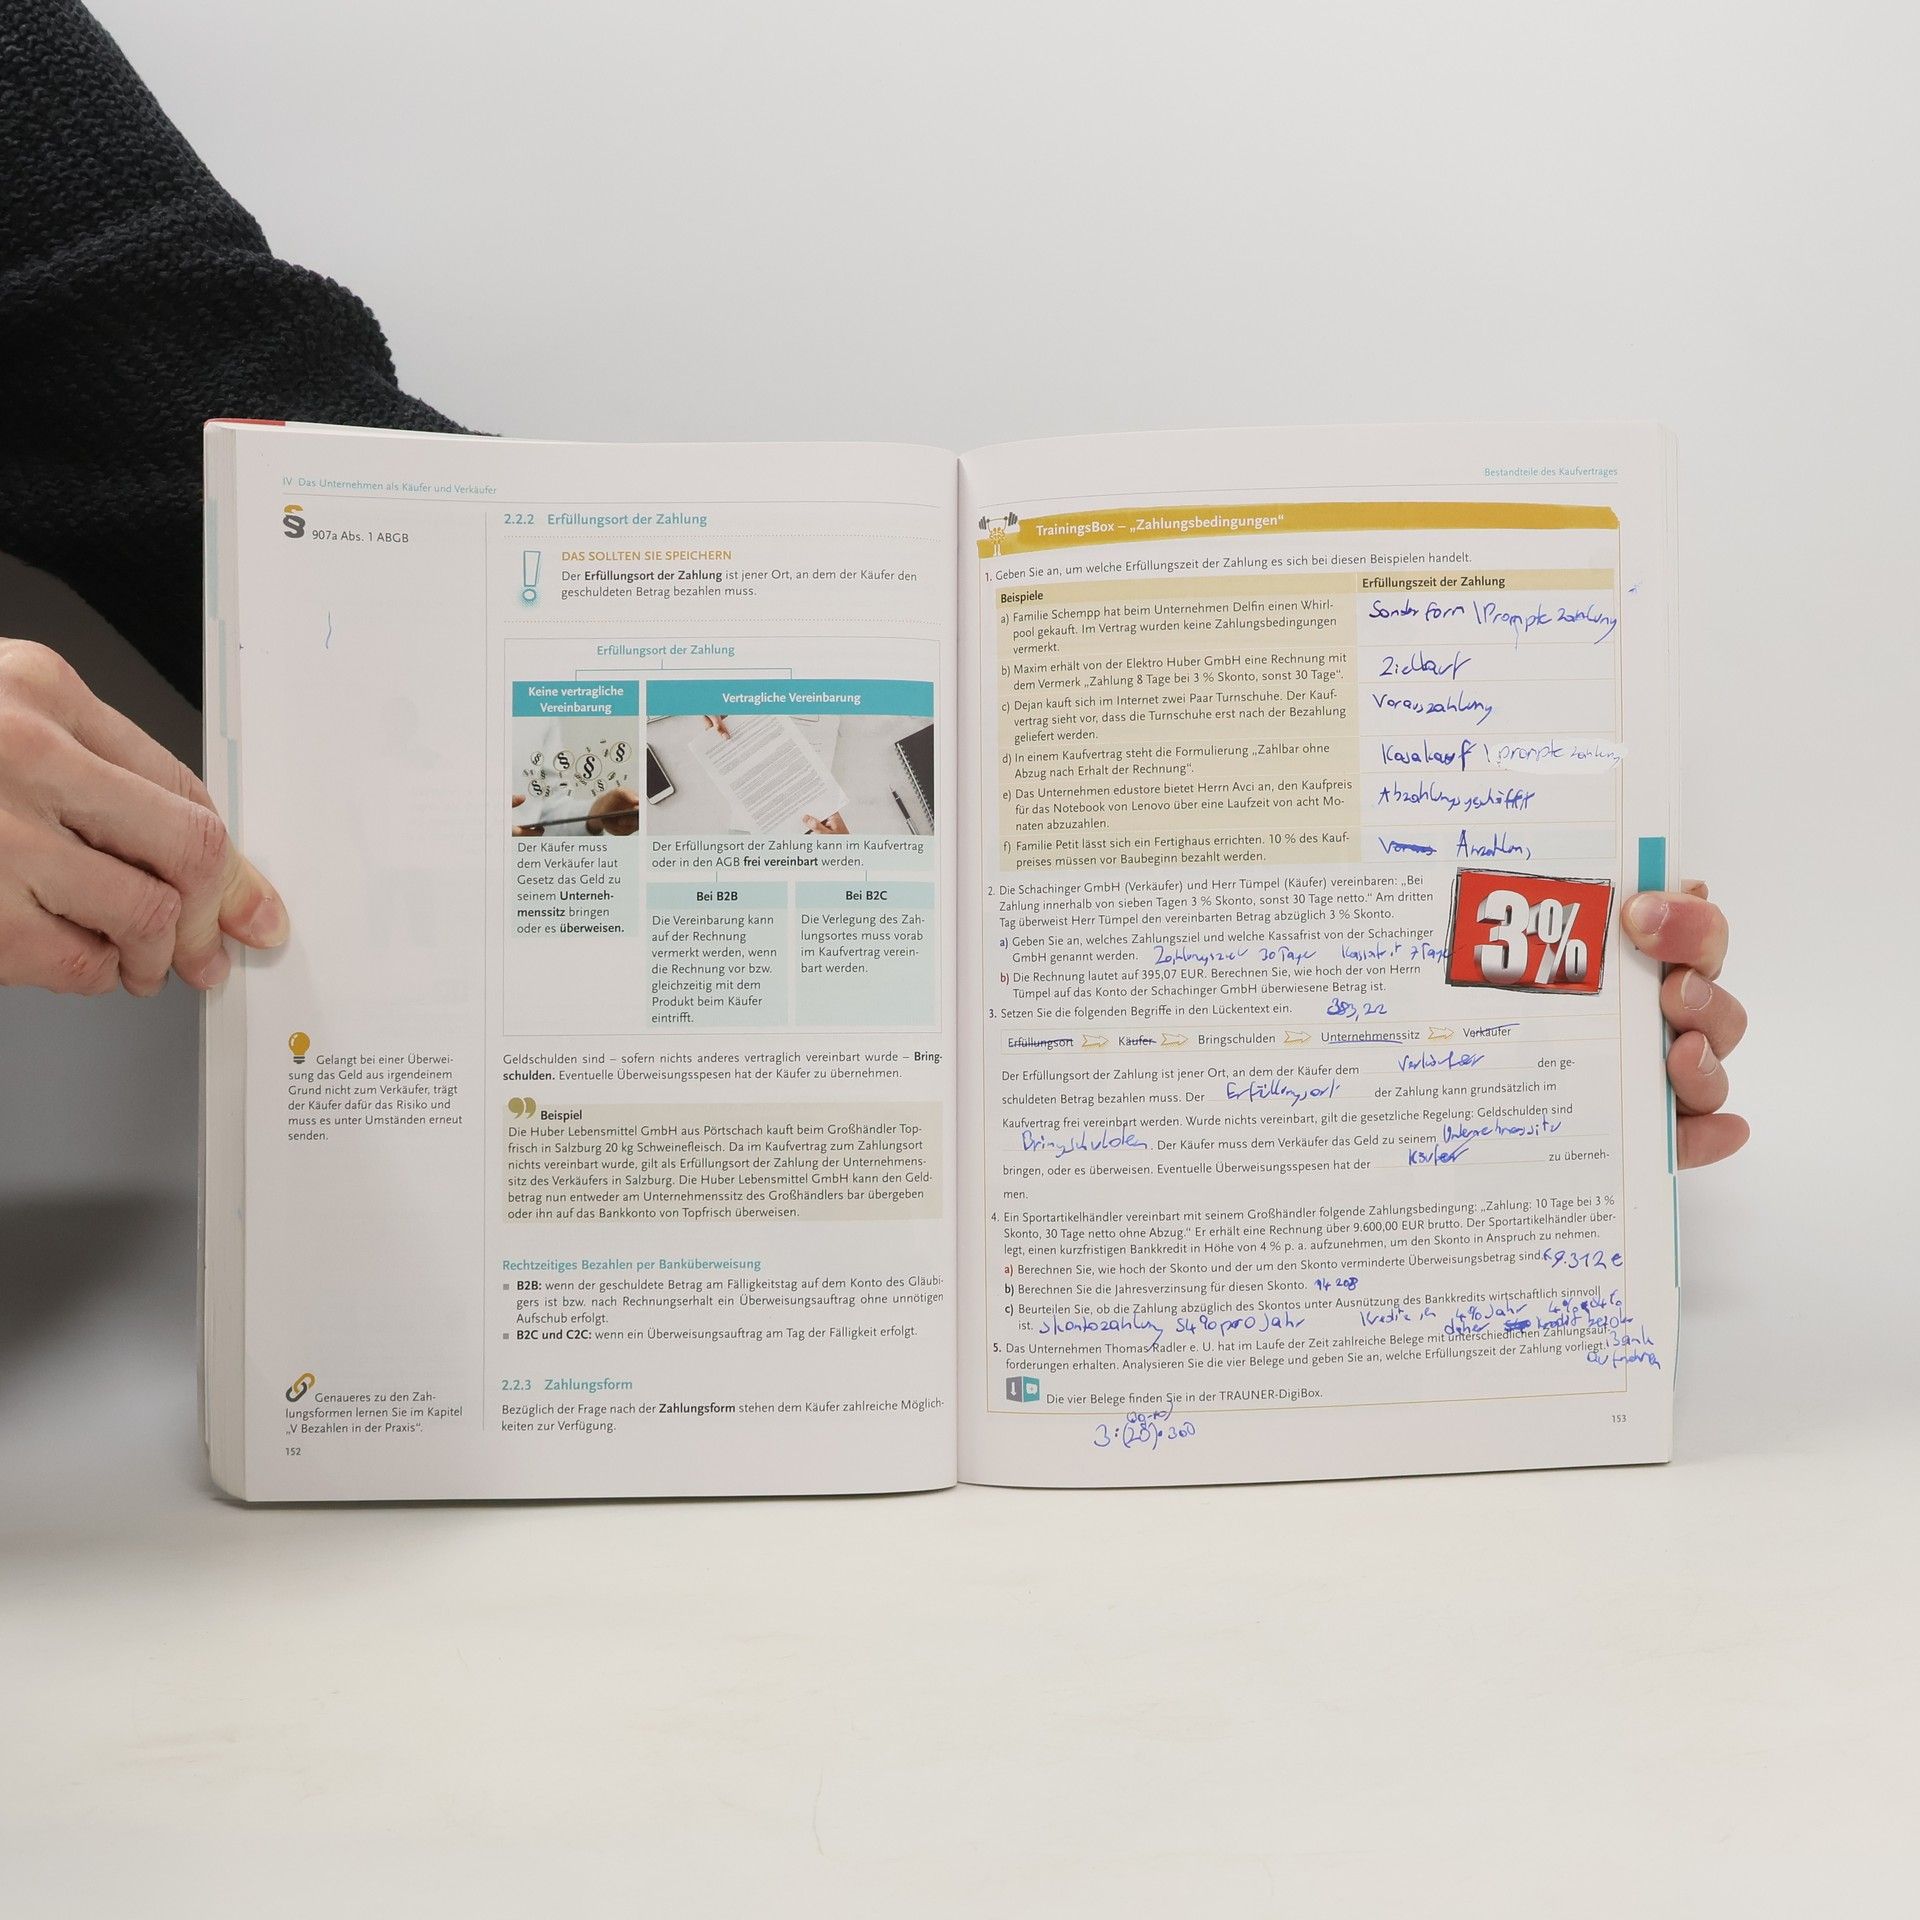 IV Das Unternehmen als Käufer und Verkäufer
§ 907a Abs. 1 ABGB
2.2.2 Erfüllungsort der Zahlung
DAS SOLLTEN SIE SPEICHERN
Der Erfüllungsort der Zahlung ist jener Ort, an dem der Käufer den
geschuldeten Betrag bezahlen muss.
Erfüllungsort der Zahlung
Keine vertragliche
Vereinbarung
Vertragliche Vereinbarung
Der Käufer muss
dem Verkäufer laut
Gesetz das Geld zu
seinem Unterneh-
menssitz bringen
oder es überweisen.
Der Erfüllungsort der Zahlung kann im Kaufvertrag
oder in den AGB frei vereinbart werden.
Bei B2B
Die Vereinbarung kann
auf der Rechnung
vermerkt werden, wenn
die Rechnung vor bzw.
gleichzeitig mit dem
Produkt beim Käufer
eintrifft.
Bei B2C
Die Verlegung des Zah-
lungsortes muss vorab
im Kaufvertrag verein-
bart werden.
Gelangt bei einer Überwei-
sung das Geld aus irgendeinem
Grund nicht zum Verkäufer, trägt
der Käufer dafür das Risiko und
muss es unter Umständen erneut
senden.
Geldschulden sind – sofern nichts anderes vertraglich vereinbart wurde – Bring-
schulden. Eventuelle Überweisungsspesen hat der Käufer zu übernehmen.
Beispiel
Die Huber Lebensmittel GmbH aus Pörtschach kauft beim Großhändler Top-
frisch in Salzburg 20 kg Schweinefleisch. Da im Kaufvertrag zum Zahlungsort
nichts vereinbart wurde, gilt als Erfüllungsort der Zahlung der Unternehmens-
sitz des Verkäufers in Salzburg. Die Huber Lebensmittel GmbH kann den Geld-
betrag nun entweder am Unternehmenssitz des Großhändlers bar übergeben
oder ihn auf das Bankkonto von Topfrisch überweisen.
Rechtzeitiges Bezahlen per Banküberweisung
B2B: wenn der geschuldete Betrag am Fälligkeitstag auf dem Konto des Gläubi-
gers ist bzw. nach Rechnungserhalt ein Überweisungsauftrag ohne unnötigen
Aufschub erfolgt.
B2C und C2C: wenn ein Überweisungsauftrag am Tag der Fälligkeit erfolgt.
Genaueres zu den Zah-
lungsformen lernen Sie im Kapitel
„V Bezahlen in der Praxis“.
2.2.3 Zahlungsform
Bezüglich der Frage nach der Zahlungsform stehen dem Käufer zahlreiche Möglich-
keiten zur Verfügung.
152
Bestandteile des Kaufvertrages
TrainingsBox – „Zahlungsbedingungen“
1. Geben Sie an, um welche Erfüllungszeit der Zahlung es sich bei diesen Beispielen handelt.
Beispiele
Erfüllungszeit der Zahlung
a) Familie Schempp hat beim Unternehmen Delfin einen Whirl-
pool gekauft. Im Vertrag wurden keine Zahlungsbedingungen
vermerkt.
Sonderform | Prompte Zahlung
b) Maxim erhält von der Elektro Huber GmbH eine Rechnung mit
dem Vermerk „Zahlung 8 Tage bei 3 % Skonto, sonst 30 Tage“.
Zielkauf
c) Dejan kauft sich im Internet zwei Paar Turnschuhe. Der Kauf-
vertrag sieht vor, dass die Turnschuhe erst nach der Bezahlung
geliefert werden.
Vorauszahlung
d) In einem Kaufvertrag steht die Formulierung „Zahlbar ohne
Abzug nach Erhalt der Rechnung“.
Kasakauf | prompte zahlung
e) Das Unternehmen edustore bietet Herrn Avci an, den Kaufpreis
für das Notebook von Lenovo über eine Laufzeit von acht Mo-
naten abzuzahlen.
Abzahlungsgeschäft
f) Familie Petit lässt sich ein Fertighaus errichten. 10 % des Kauf-
preises müssen vor Baubeginn bezahlt werden.
2. Die Schachinger GmbH (Verkäufer) und Herr Tümpel (Käufer) vereinbaren: „Bei
Zahlung innerhalb von sieben Tagen 3 % Skonto, sonst 30 Tage netto.“ Am dritten
Tag überweist Herr Tümpel den vereinbarten Betrag abzüglich 3 % Skonto.
a) Geben Sie an, welches Zahlungsziel und welche Kassafrist von der Schachinger
GmbH genannt werden. Zahlungsziel 30 Tage Kassafrist 7 Tage
b) Die Rechnung lautet auf 395,07 EUR. Berechnen Sie, wie hoch der von Herrn
Tümpel auf das Konto der Schachinger GmbH überwiesene Betrag ist.
3%
383,22
3. Setzen Sie die folgenden Begriffe in den Lückentext ein.
Erfüllungsort Käufer Bringschulden Unternehmenssitz Verkäufer
Der Erfüllungsort der Zahlung ist jener Ort, an dem der Käufer dem Verkäufer den ge-
schuldeten Betrag bezahlen muss. Der Erfüllungsort der Zahlung kann grundsätzlich im
Kaufvertrag frei vereinbart werden. Wurde nichts vereinbart, gilt die gesetzliche Regelung: Geldschulden sind
Bringschulden. Der Käufer muss dem Verkäufer das Geld zu seinem Unternehmenssitz
bringen, oder es überweisen. Eventuelle Überweisungsspesen hat der Käufer zu überneh-
men.
4. Ein Sportartikelhändler vereinbart mit seinem Großhändler folgende Zahlungsbedingung: „Zahlung: 10 Tage bei 3 %
Skonto, 30 Tage netto ohne Abzug.“ Er erhält eine Rechnung über 9.600,00 EUR brutto. Der Sportartikelhändler über-
legt, einen kurzfristigen Bankkredit in Höhe von 4 % p. a. aufzunehmen, um den Skonto in Anspruch zu nehmen.
a) Berechnen Sie, wie hoch der Skonto und der um den Skonto verminderte Überweisungsbetrag sind. 9.312 €
b) Berechnen Sie die Jahresverzinsung für diesen Skonto.
c) Beurteilen Sie, ob die Zahlung abzüglich des Skontos unter Ausnützung des Bankkredits wirtschaftlich sinnvoll
ist. Skontozahlung 54% pro Jahr 4% Jahr
daher
5. Das Unternehmen Thomas Radler e. U. hat im Laufe der Zeit zahlreiche Belege mit unterschiedlichen Zahlungsauf-
forderungen erhalten. Analysieren Sie die vier Belege und geben Sie an, welche Erfüllungszeit der Zahlung vorliegt.
Bank
Die vier Belege finden Sie in der TRAUNER-DigiBox.
153